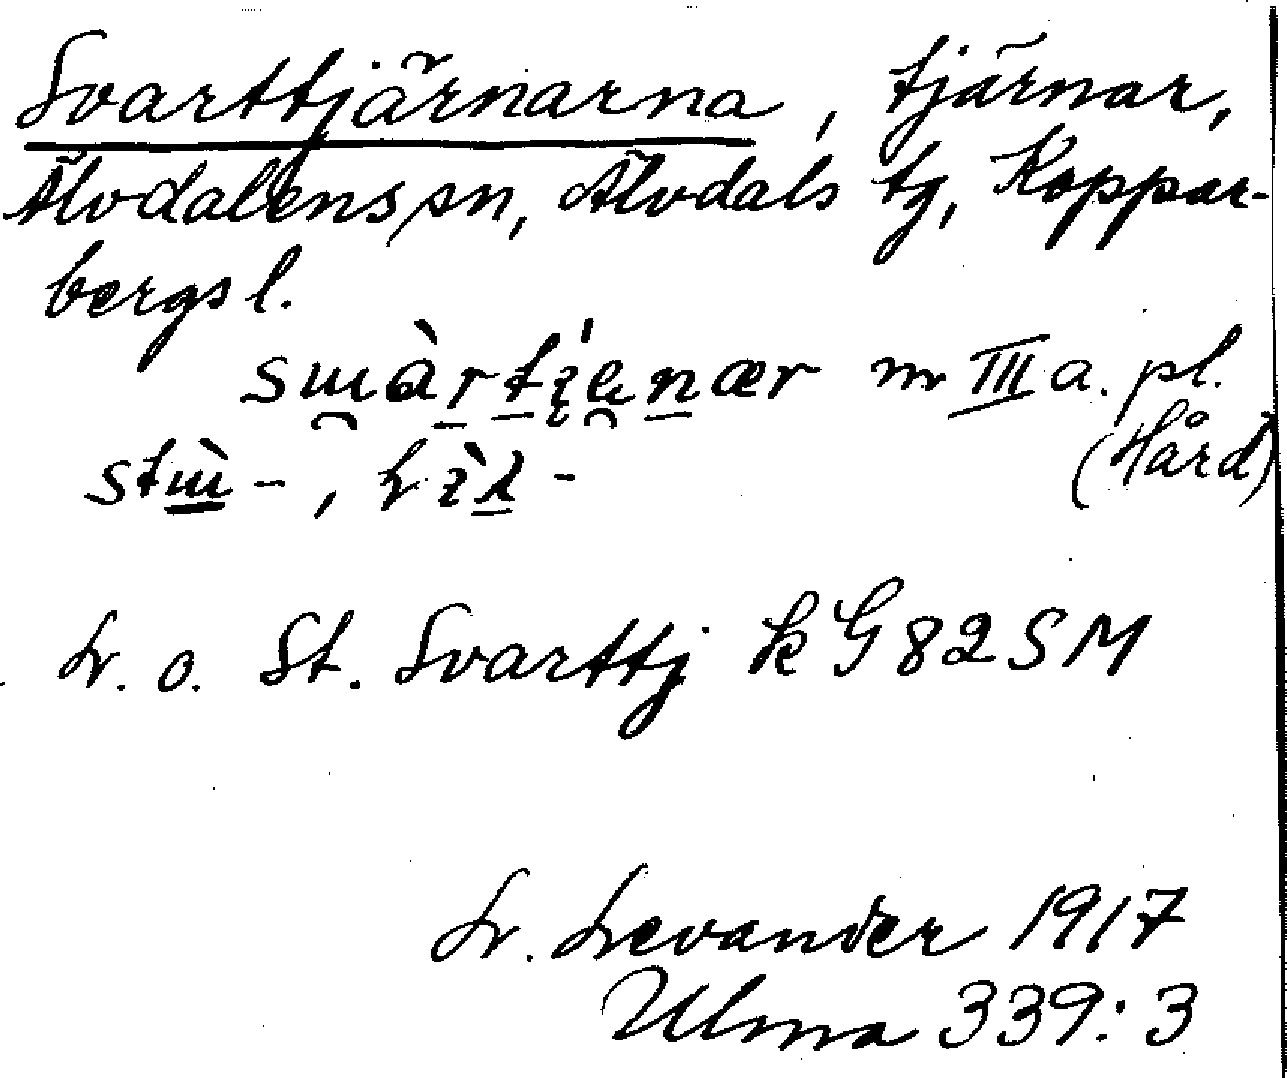 Svarttjärnarna, tjärnar,
Älvdalens sn, Älvdals tg, Koppar-
bergs l.
m III a. pl.
(Hård)
L. o. St. Svarttj k G 82 SM
L. Levander 1917
Ulma 339:3